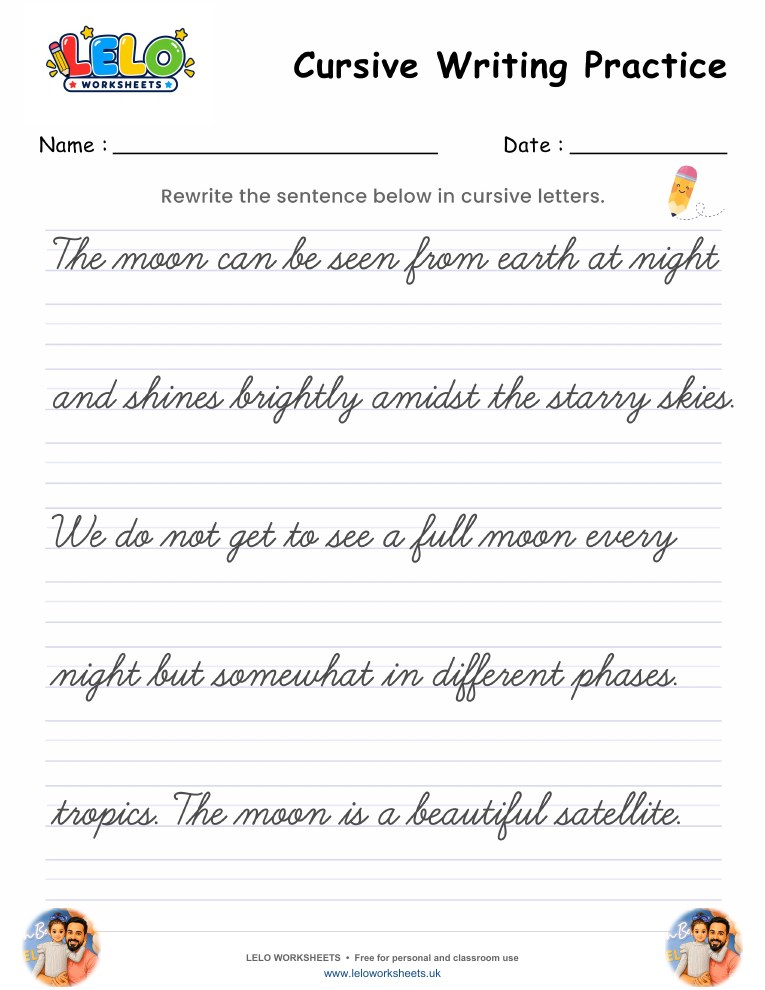 LELO
WORKSHEETS
Cursive Writing Practice
Name : Date :
Rewrite the sentence below in cursive letters.
The moon can be seen from earth at night
and shines brightly amidst the starry skies.
We do not get to see a full moon every
night but somewhat in different phases.
tropics. The moon is a beautiful satellite.
LELO WORKSHEETS • Free for personal and classroom use
www.leloworksheets.uk